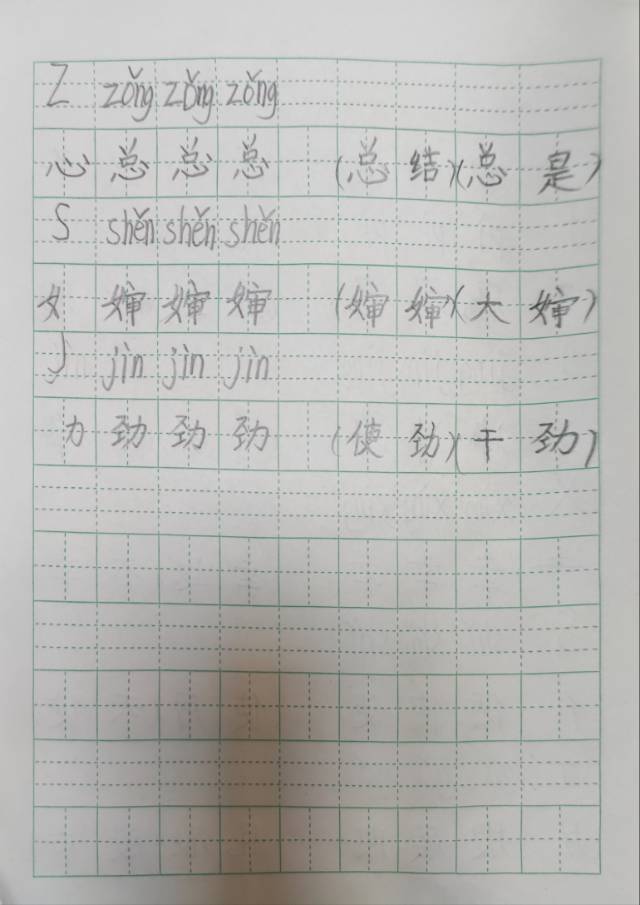 Z zǒng zǒng zǒng
心 总 总 总 (总结)(总是)
S shěn shěn shěn
女 婶 婶 婶 (婶婶)(大婶)
J jìn jìn jìn
力 劲 劲 劲 (使劲)(干劲)